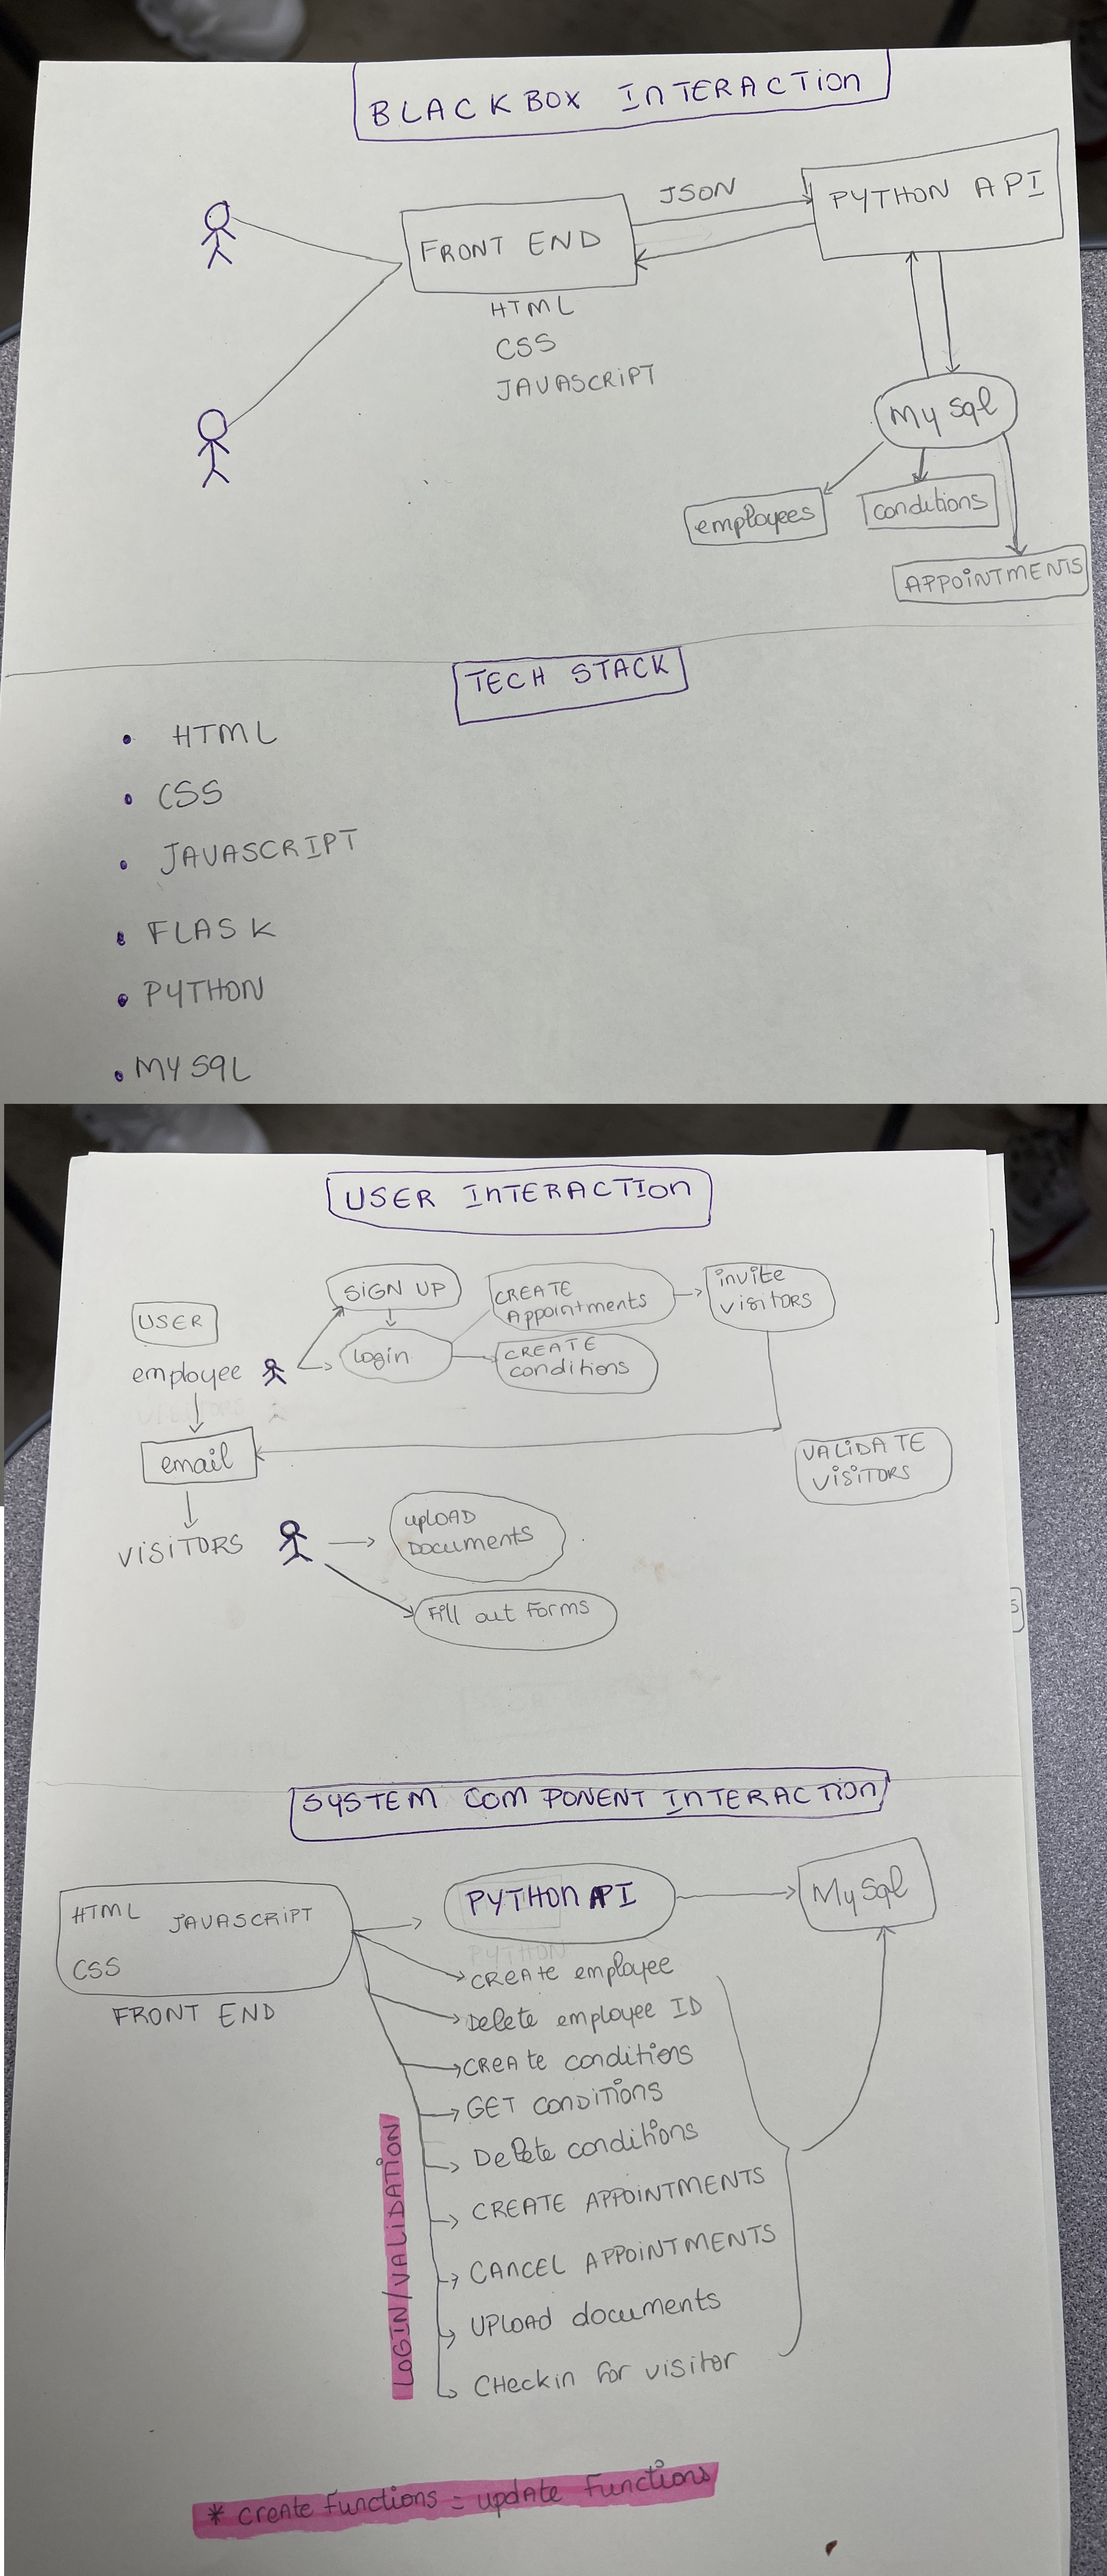 BLACKBOX INTERACTION
JSON
PYTHON API
FRONT END
HTML
CSS
JAVASCRIPT
MySql
employees
conditions
APPOINTMENTS
TECH STACK
• HTML
• CSS
• JAVASCRIPT
• FLASK
• PYTHON
• MYSQL
USER INTERACTION
USER
SIGN UP
CREATE
Appointments
invite
visitors
employee
login
CREATE
conditions
email
VALIDATE
VISITORS
VISITORS
uplOAD
DOCUMENTS
Fill out Forms
SYSTEM COMPONENT INTERACTION
HTML JAVASCRIPT
CSS
FRONT END
PYTHON API
MySql
PYTHON
CREATE employee
Delete employee ID
CREATE conditions
GET CONDITIONS
Delete conditions
CREATE APPOINTMENTS
CANCEL APPOINTMENTS
UPLOAD documents
CHeckin for visitor
LOGIN/VALIDATION
* create functions = update functions